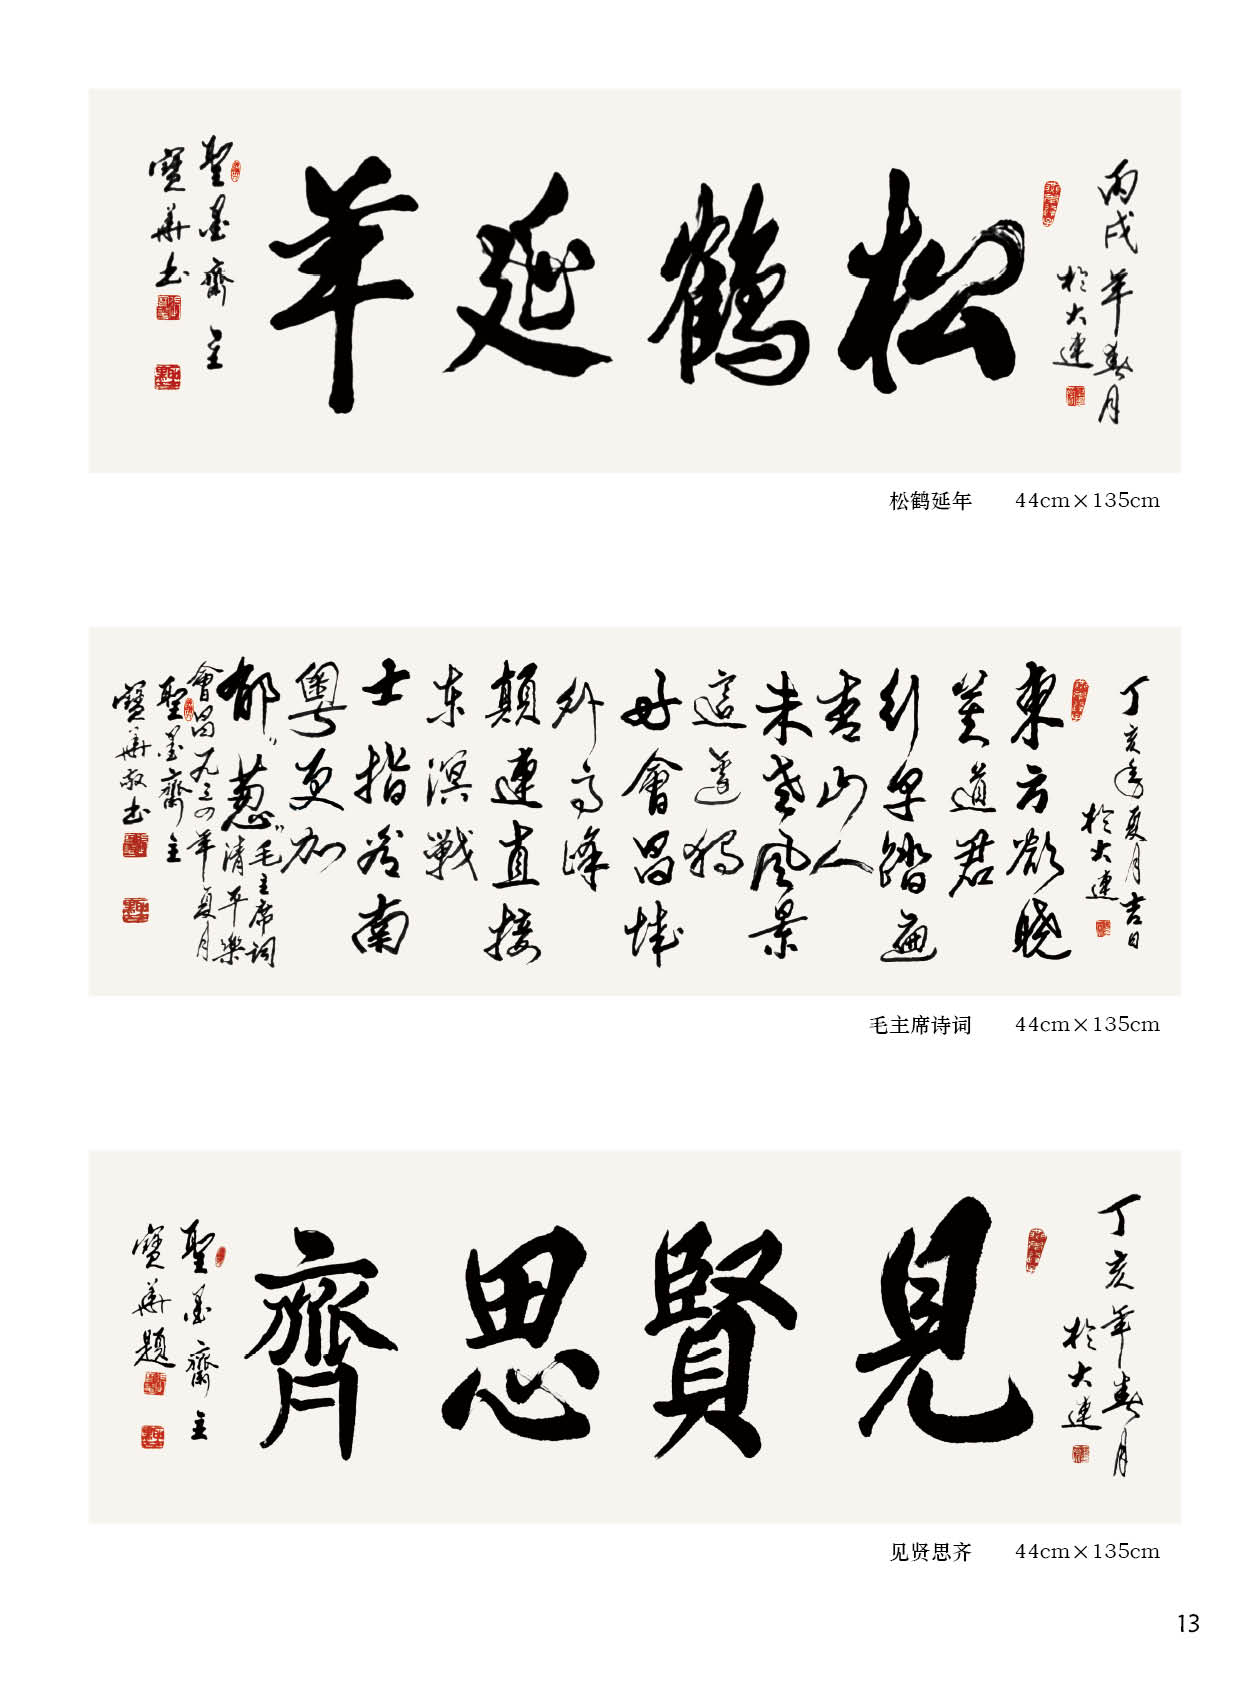 丙戌年春月
於大連
松鶴延年
聖墨齋主
寶華书
松鹤延年 44cm×135cm
丁亥年夏月吉日
於大連
東方欲曉
莫道君
行早踏遍
青山人
未老風景
這邊獨
好會昌城
外高峰
顛連直接
东溟戰
士指看南
粵更加
郁〃葱〃
毛主席词
清平樂
會昌一九三四年夏月
聖墨齋主
寶華敬书
毛主席诗词 44cm×135cm
丁亥年春月
於大連
見賢思齊
聖墨齋主
寶華題
见贤思齐 44cm×135cm
13